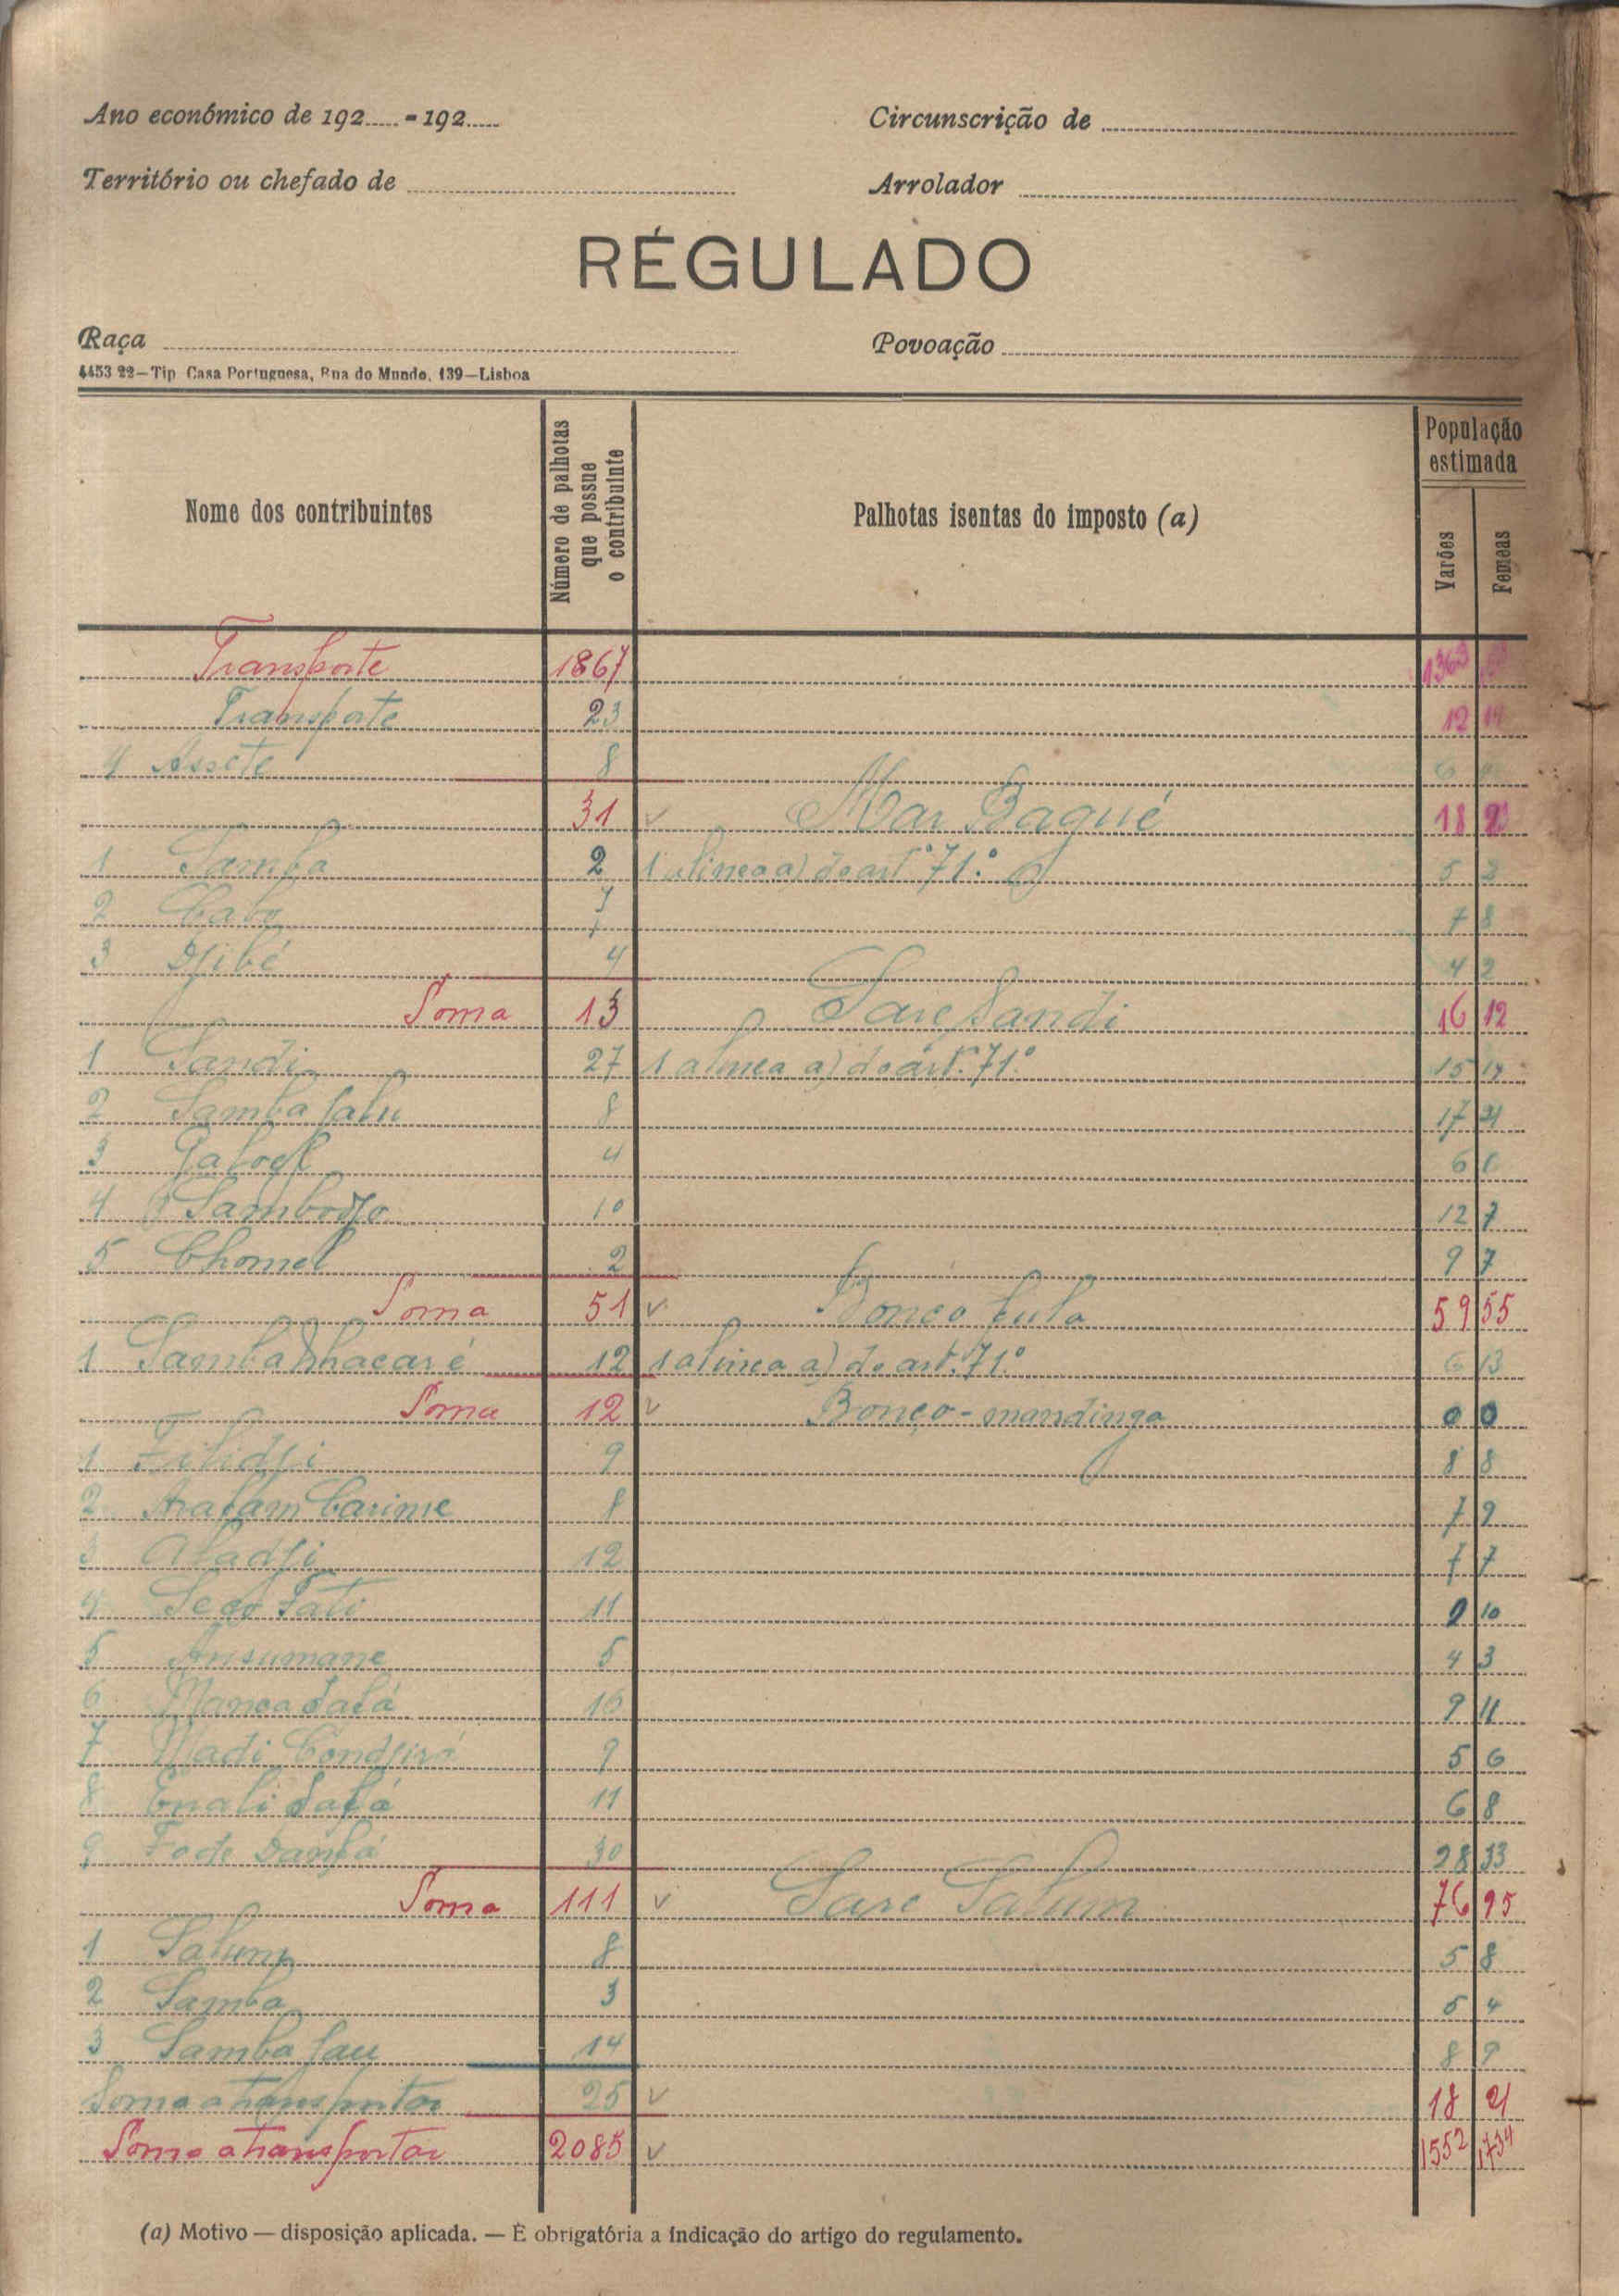 Ano económico de 192..... - 192..... Circunscrição de
Território ou chefado de Arrolador
RÉGULADO
Raça Povoação
4453 22—Tip Casa Portuguesa, Rua do Mundo, 139—Lisboa
Nome dos contribuintes Número de palhotas que possue o contribuinte Palhotas isentas do imposto (a) População estimada Varões Femeas
Transporte 1867 1363
Transporte 23 12 14
4 Assete 8 6
31 v Mar Baqué 18
1 Samba 2 1 alinea a) do artº 71º 5 2
2 7 7 8
3 Djibé 4 4 2
Soma 13 Sare Sandi 16 12
1 Sandi 27 1 alinea a) do artº 71º 15 14
2 Samba Salu 8 17 21
3 4 6 6
4 Sambodjo 10 12 7
5 Chomel 2 9 7
Soma 51 v Bonco fula 59 55
1 Samba Dhacaré 12 1 alinea a) do artº 71º 6 13
Soma 12 v Bonco-mandinga 0 0
1 9 8 8
2 Carime 8 7 9
3 Aladji 12 7 7
4 Seco Fati 11 9 10
5 Ansumane 5 4 3
6 16 9 11
7 Madi 9 5 6
8 11 6 8
9 Fode 30 28 33
Soma 111 v Sare Salum 76 95
1 Salum 8 5 8
2 Samba 3 5 4
3 Samba Sau 14 8 9
Soma a transportar 25 v 18 21
Soma a transportar 2085 v 1552 1734
(a) Motivo — disposição aplicada. — É obrigatória a indicação do artigo do regulamento.